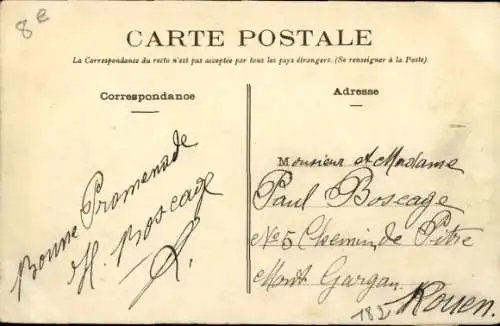 8e
CARTE POSTALE
La Correspondance du recto n'est pas acceptée par tous les pays étrangers. (Se renseigner à la Poste).
Correspondance
Bonne Promenade
H. Boscage
R.
Adresse
Monsieur et Madame
Paul Boscage
No 5 Chemin de Pitre
Mont Gargan.
182 Rouen.